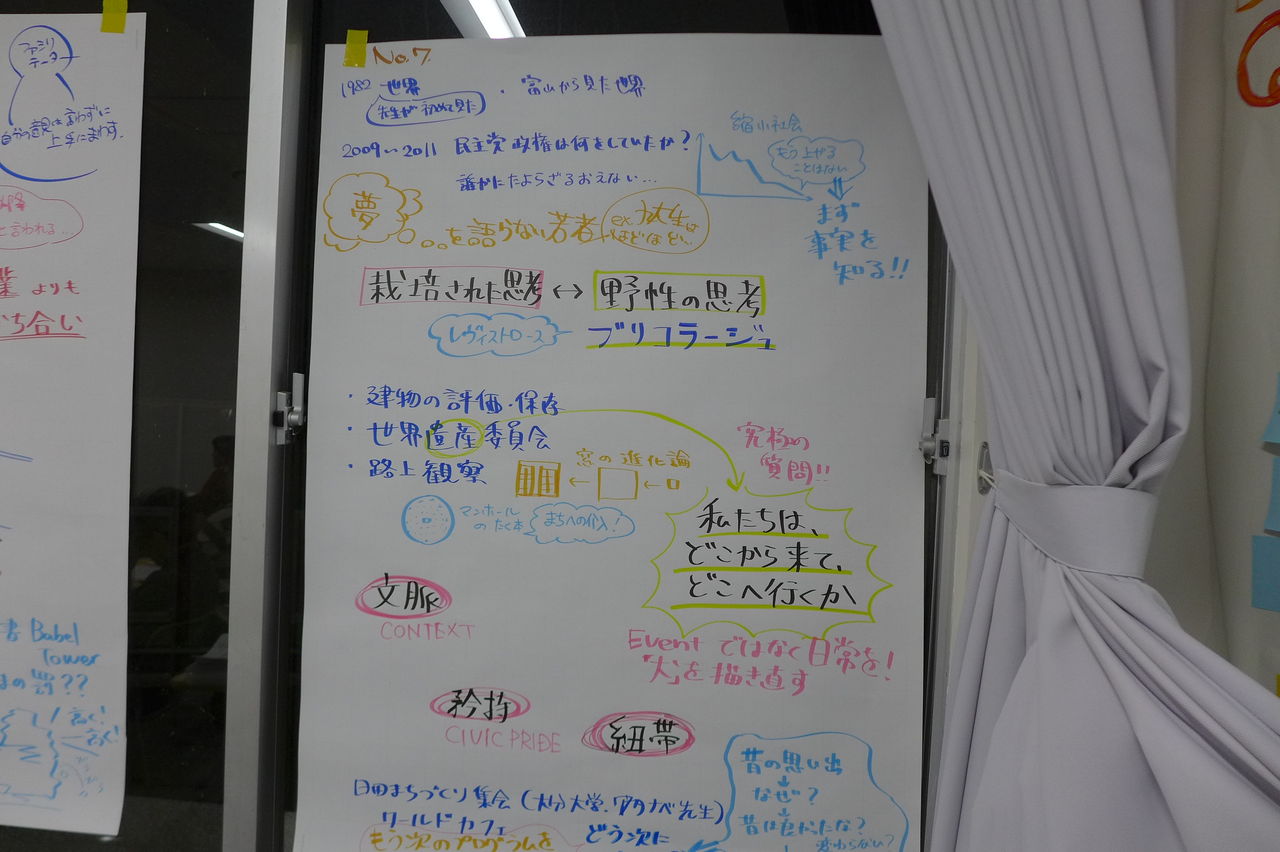 ファシリ
テーター
自分の意見は言わずに
上手にまわす。
と言われる…
業 よりも
ち合い
書 Babel
Tower
の罰??
高く!
高く!
No.7
1982 世界
先生が初めて見た
・富山から見た世界
2009〜2011 民主党政権は何をしていたか?
誰かにたよらざるおえない…
縮小社会
もう上がる
ことはない
まず
事実を
知る!!
夢
を語らない若者
ex
ほどほど…
栽培された思考 ↔ 野性の思考
レヴィストロース
ブリコラージュ
・建物の評価・保存
・世界遺産委員会
・路上観察
窓の進化論
マンホール
のたく本
まちへの介入!
究極の
質問!!
私たちは、
どこから来て、
どこへ行くか
文脈
CONTEXT
Event ではなく日常を!
を描き直す
矜持
CIVIC PRIDE
紐帯
日田まちづくり集会(大分大学・ワタナベ先生)
ワールドカフェ
もう次のプログラムを
どう次に
昔の思い出
なぜ?
昔は良かったな?
変わらない?